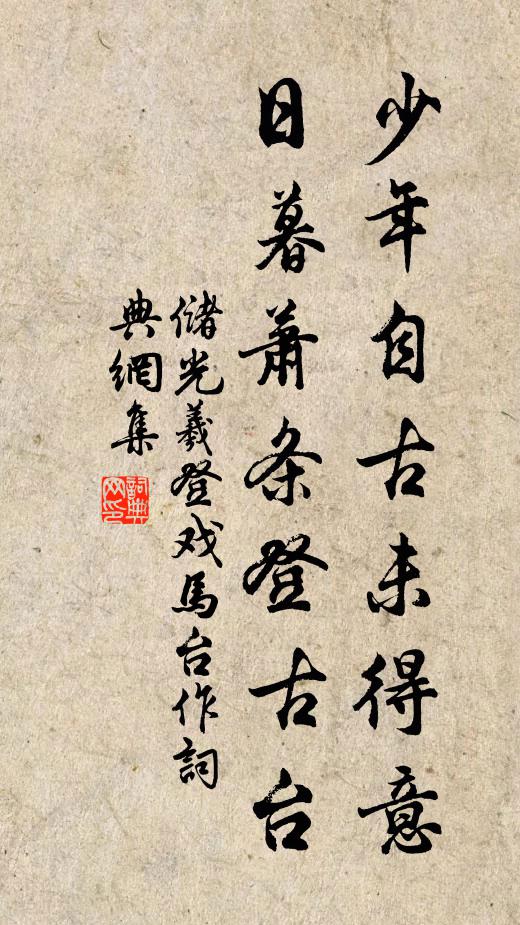 少年自古未得意
日暮萧条登古台
储光羲登戏马台作詞
典網集
詞典网印